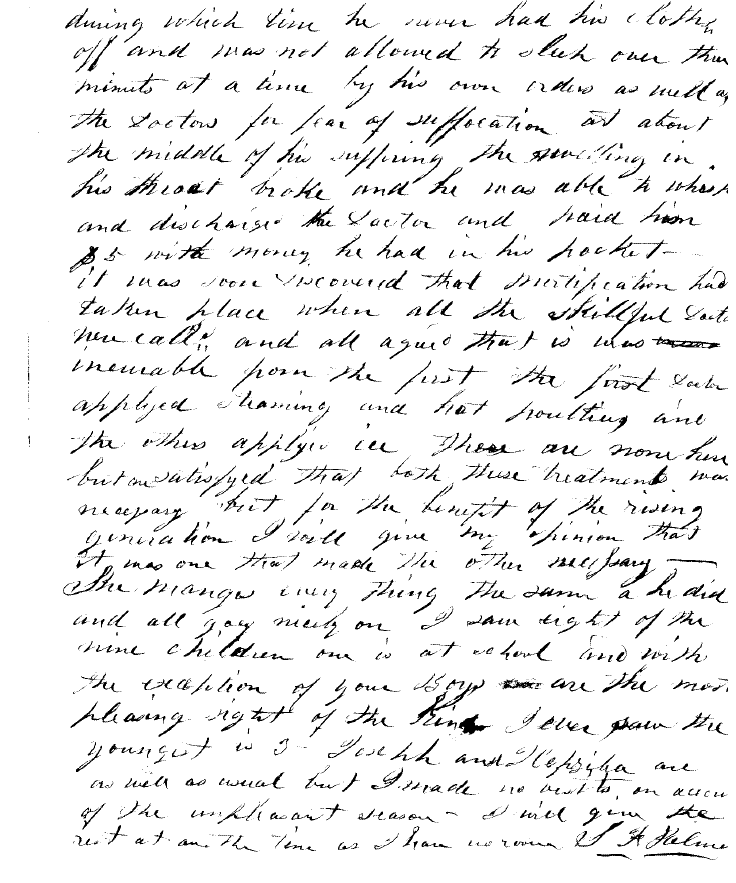 during which time he never had his cloths
off and was not allowed to sleep over three
minuts at a time by his own orders as well as
the Doctors for fear of suffocation at about
the middle of his suffiring the swelling in
his throat broke and he was able to whisp
and discharged the Doctor and paid him
$5 with money he had in his pocket —
it was soon discovered that mortification had
taken place when all the skillful Docto
were call'd and all agreed that is was
incurable from the first the first Doctor
applyed steaming and hot poultices and
the others applyed ice There are none here
but are satisfyed that both these treatments was
necessary but for the benefit of the rising
generation I will give my opinion that
it was one that made the other necessary —
She manages every thing the same a he did
and all goes nicely on I saw eight of the
nine children one is at school and with
the exception of your Boys are the most
pleasing sight of the kind I ever saw the
youngest is 3 — Joseph and Hepziba are
as well as usual but I made no visits on accou
of the unpleasant season — I will give the
rest at another time as I have no room S F Palme